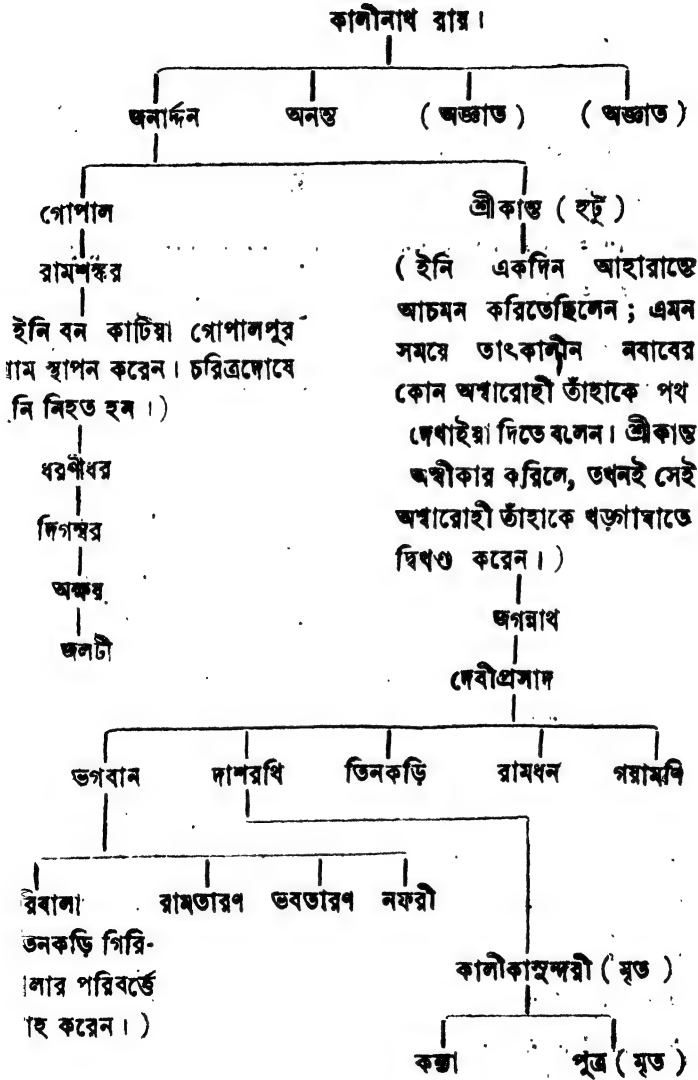 কালীনাথ রায়।
জনার্দ্দন অনন্ত (অজ্ঞাত) (অজ্ঞাত)
গোপাল
রামশঙ্কর
ইনি বন কাটিয়া গোপালপুর
গ্রাম স্থাপন করেন। চরিত্রদোষে
নি নিহত হন।)
ধরণীধর
দিগম্বর
অক্ষয়
জলটী
শ্রীকান্ত (হটূ)
(ইনি একদিন আহারান্তে
আচমন করিতেছিলেন; এমন
সময়ে তাৎকালীন নবাবের
কোন অশ্বারোহী তাঁহাকে পথ
দেখাইয়া দিতে বলেন। শ্রীকান্ত
অস্বীকার করিলে, তখনই সেই
অশ্বারোহী তাঁহাকে খড়্গাঘাতে
দ্বিখণ্ড করেন।)
জগন্নাথ
দেবীপ্রসাদ
ভগবান দাশরথি তিনকড়ি রামধন গয়ামণি
রিবালা রামতারণ ভবতারণ নফরী
তনকড়ি গিরি-
লার পরিবর্ত্তে
াহ করেন।)
কালীকাসুন্দরী (মৃত)
কন্যা পুত্র (মৃত)